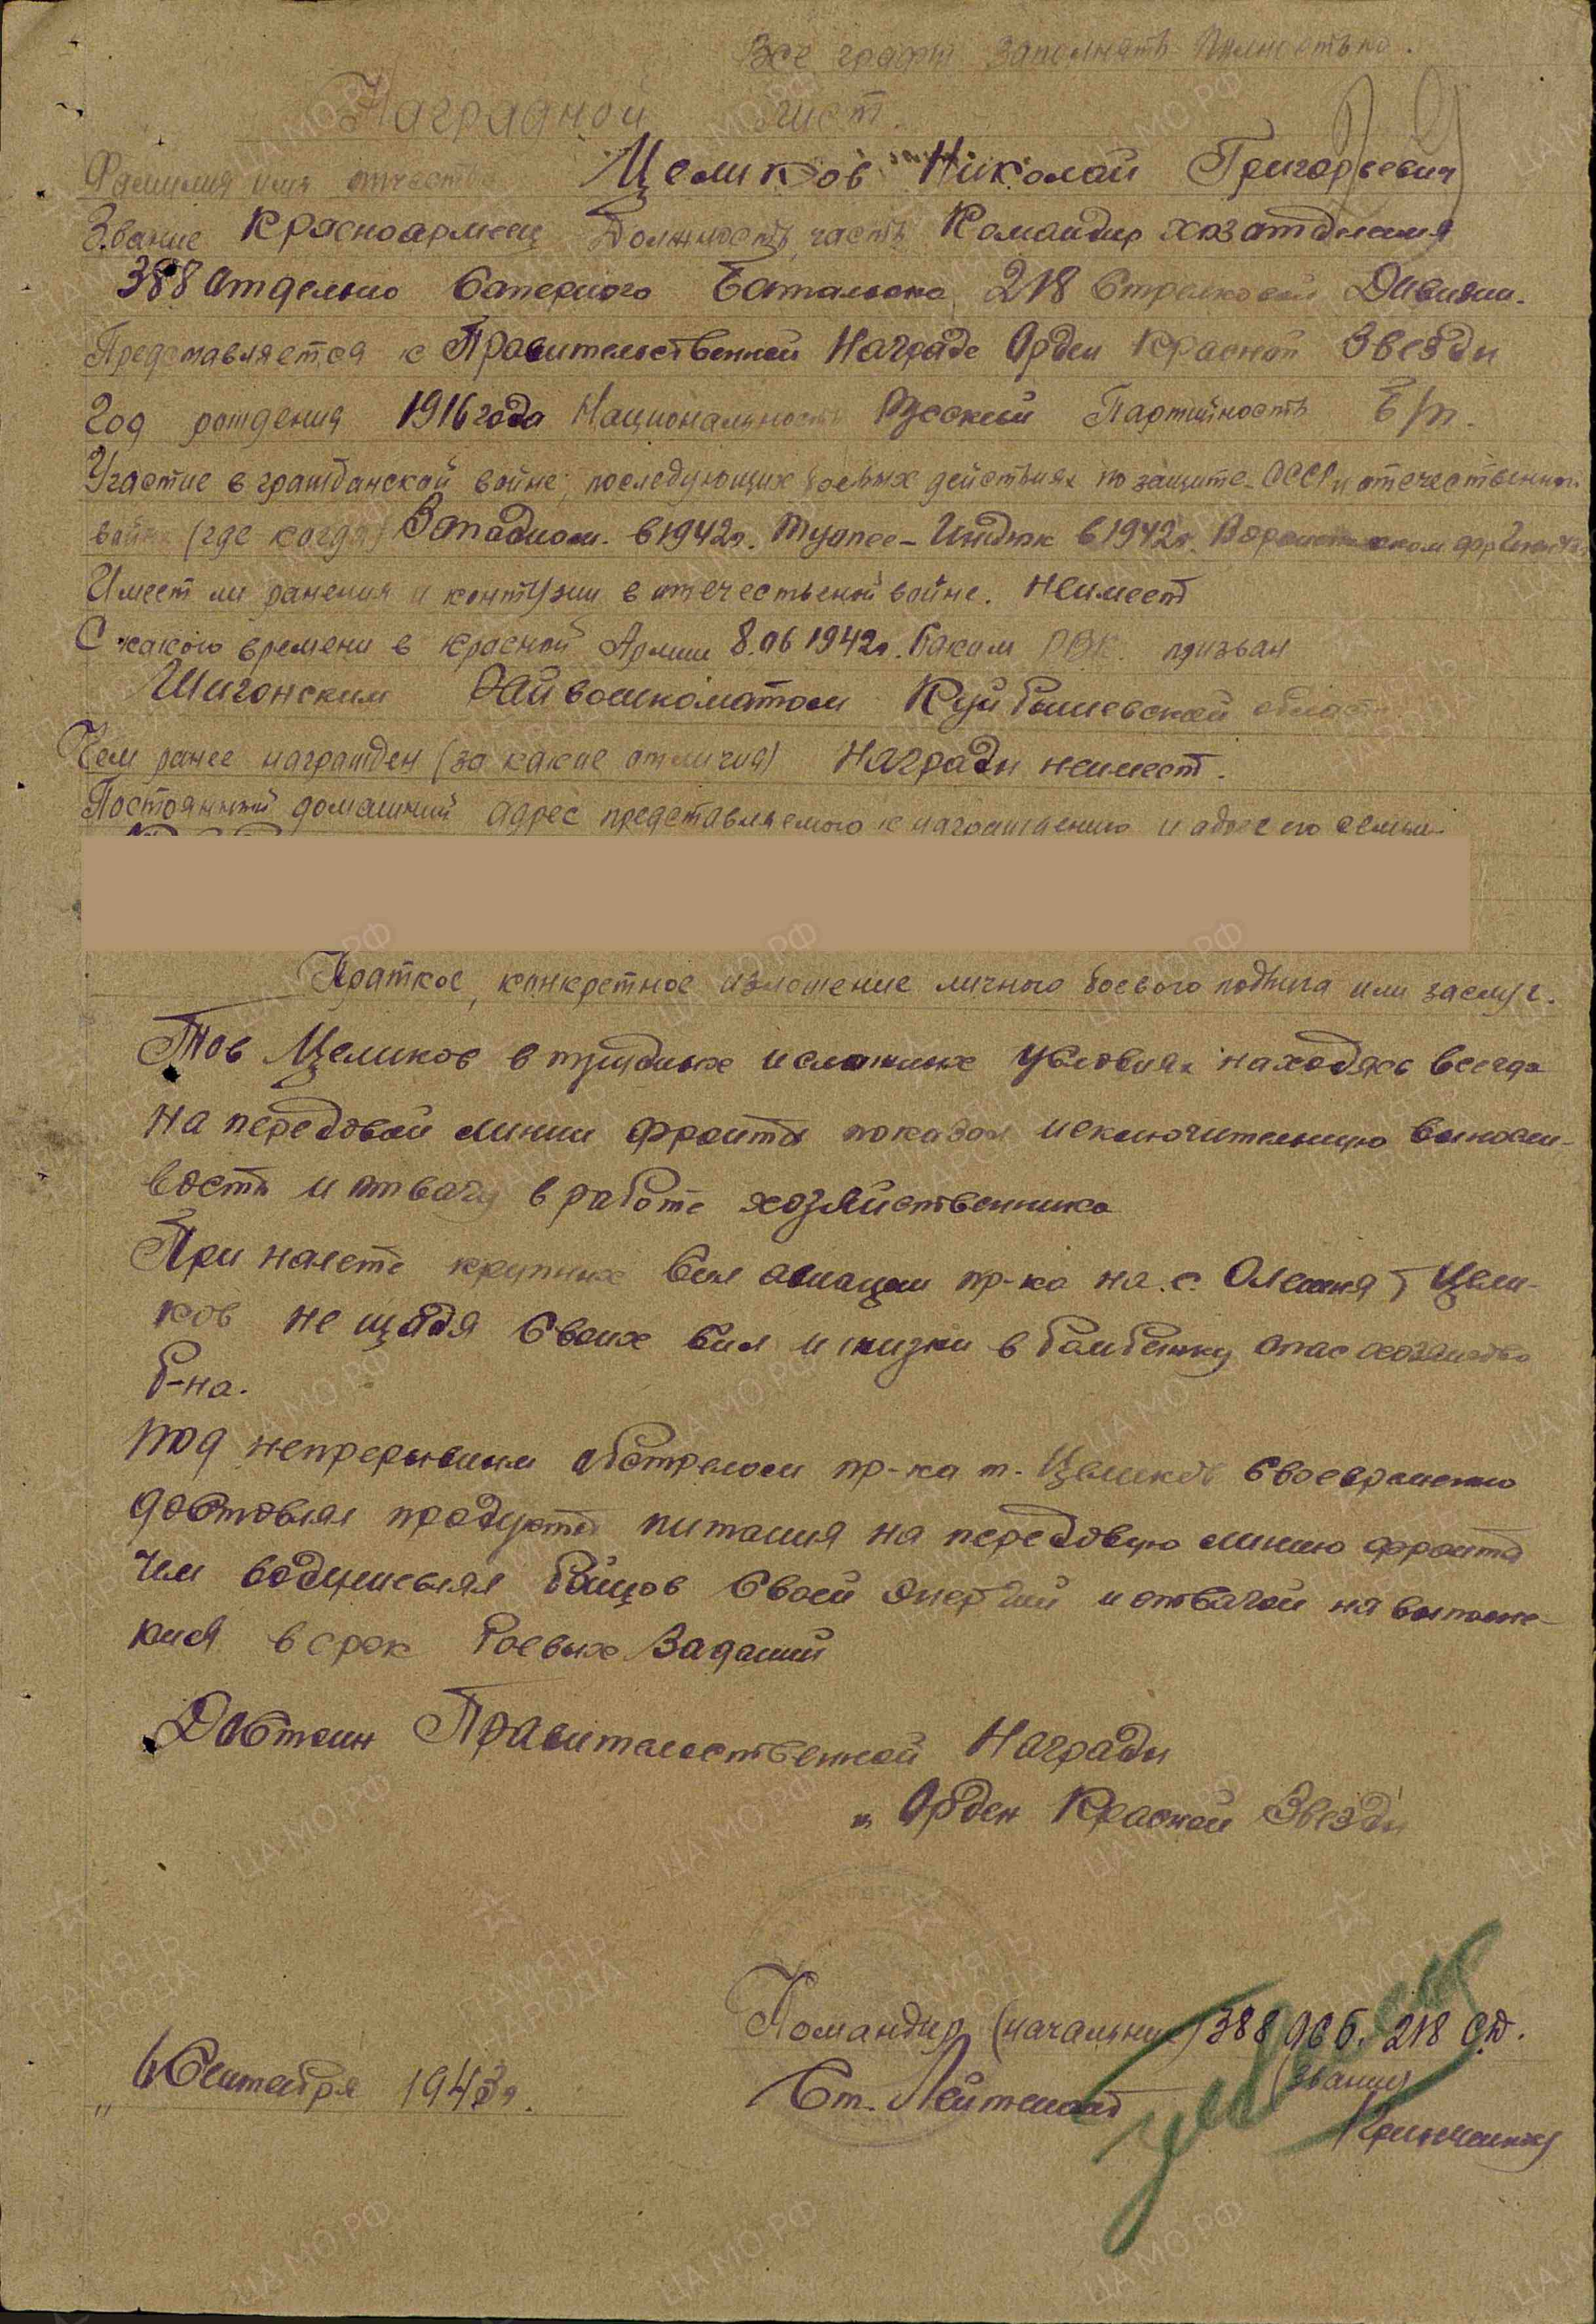 Все графы заполнять полностью.
Наградной лист.
Фамилия имя отчество Целиков Николай Григорьевич
Звание Красноармеец Должность, часть Командир хозатделения
388 Отдельно Саперного Батальона 218 Стрелковой Дивизии.
Представляется к Правительственной Награде Орден Красной Звезды
Год рождения 1916 года Национальность Русский Партийность Б/п.
Участие в гражданской войне, последующих боевых действиях по защите СССР и отечественной
войне (где когда) Западном. в 1942г. Туапсе – Индюк в 1942г.
Имеет ли ранения и контузии в отечественной войне. Неимеет
С какого времени в красной Армии 8.06 1942г. Каким РВК. призван
Шигонским Райвоенкоматом Куйбышевской области
Чем ранее награжден (за какие отличия) Награды неимеет.
Постоянный домашний адрес представляемого к награждению и адрес его семьи
Краткое, конкретное изложение личного боевого подвига или заслуг.
Тов Целиков в трудных и сложных условиях находясь всегда
на передовой линии фронта показал исключительную выносли-
вость и отвагу в работе хозяйственника
При налете крупных сил авиации пр-ка на с. Олешня т Цели-
ков не щядя своих сил и жизни в бомбежку спас хозяйство
б-на.
Под непрерывным обстрелом пр-ка т. Целиков своевременно
доставлял продукты питания на передовую линию фронта
чем водушевлял бойцов своей энергий и отвагой на выполне-
ния в срок боевых заданий
Достоин Правительственной Награды
" Орден Красной Звезды
Командир (начальник) 388 ОСБ. 218 С.Д.
(звание)
" Сентября 1943г.
Ст. Лейтенант
ПАМЯТЬ НАРОДА
ЦАМО.РФ